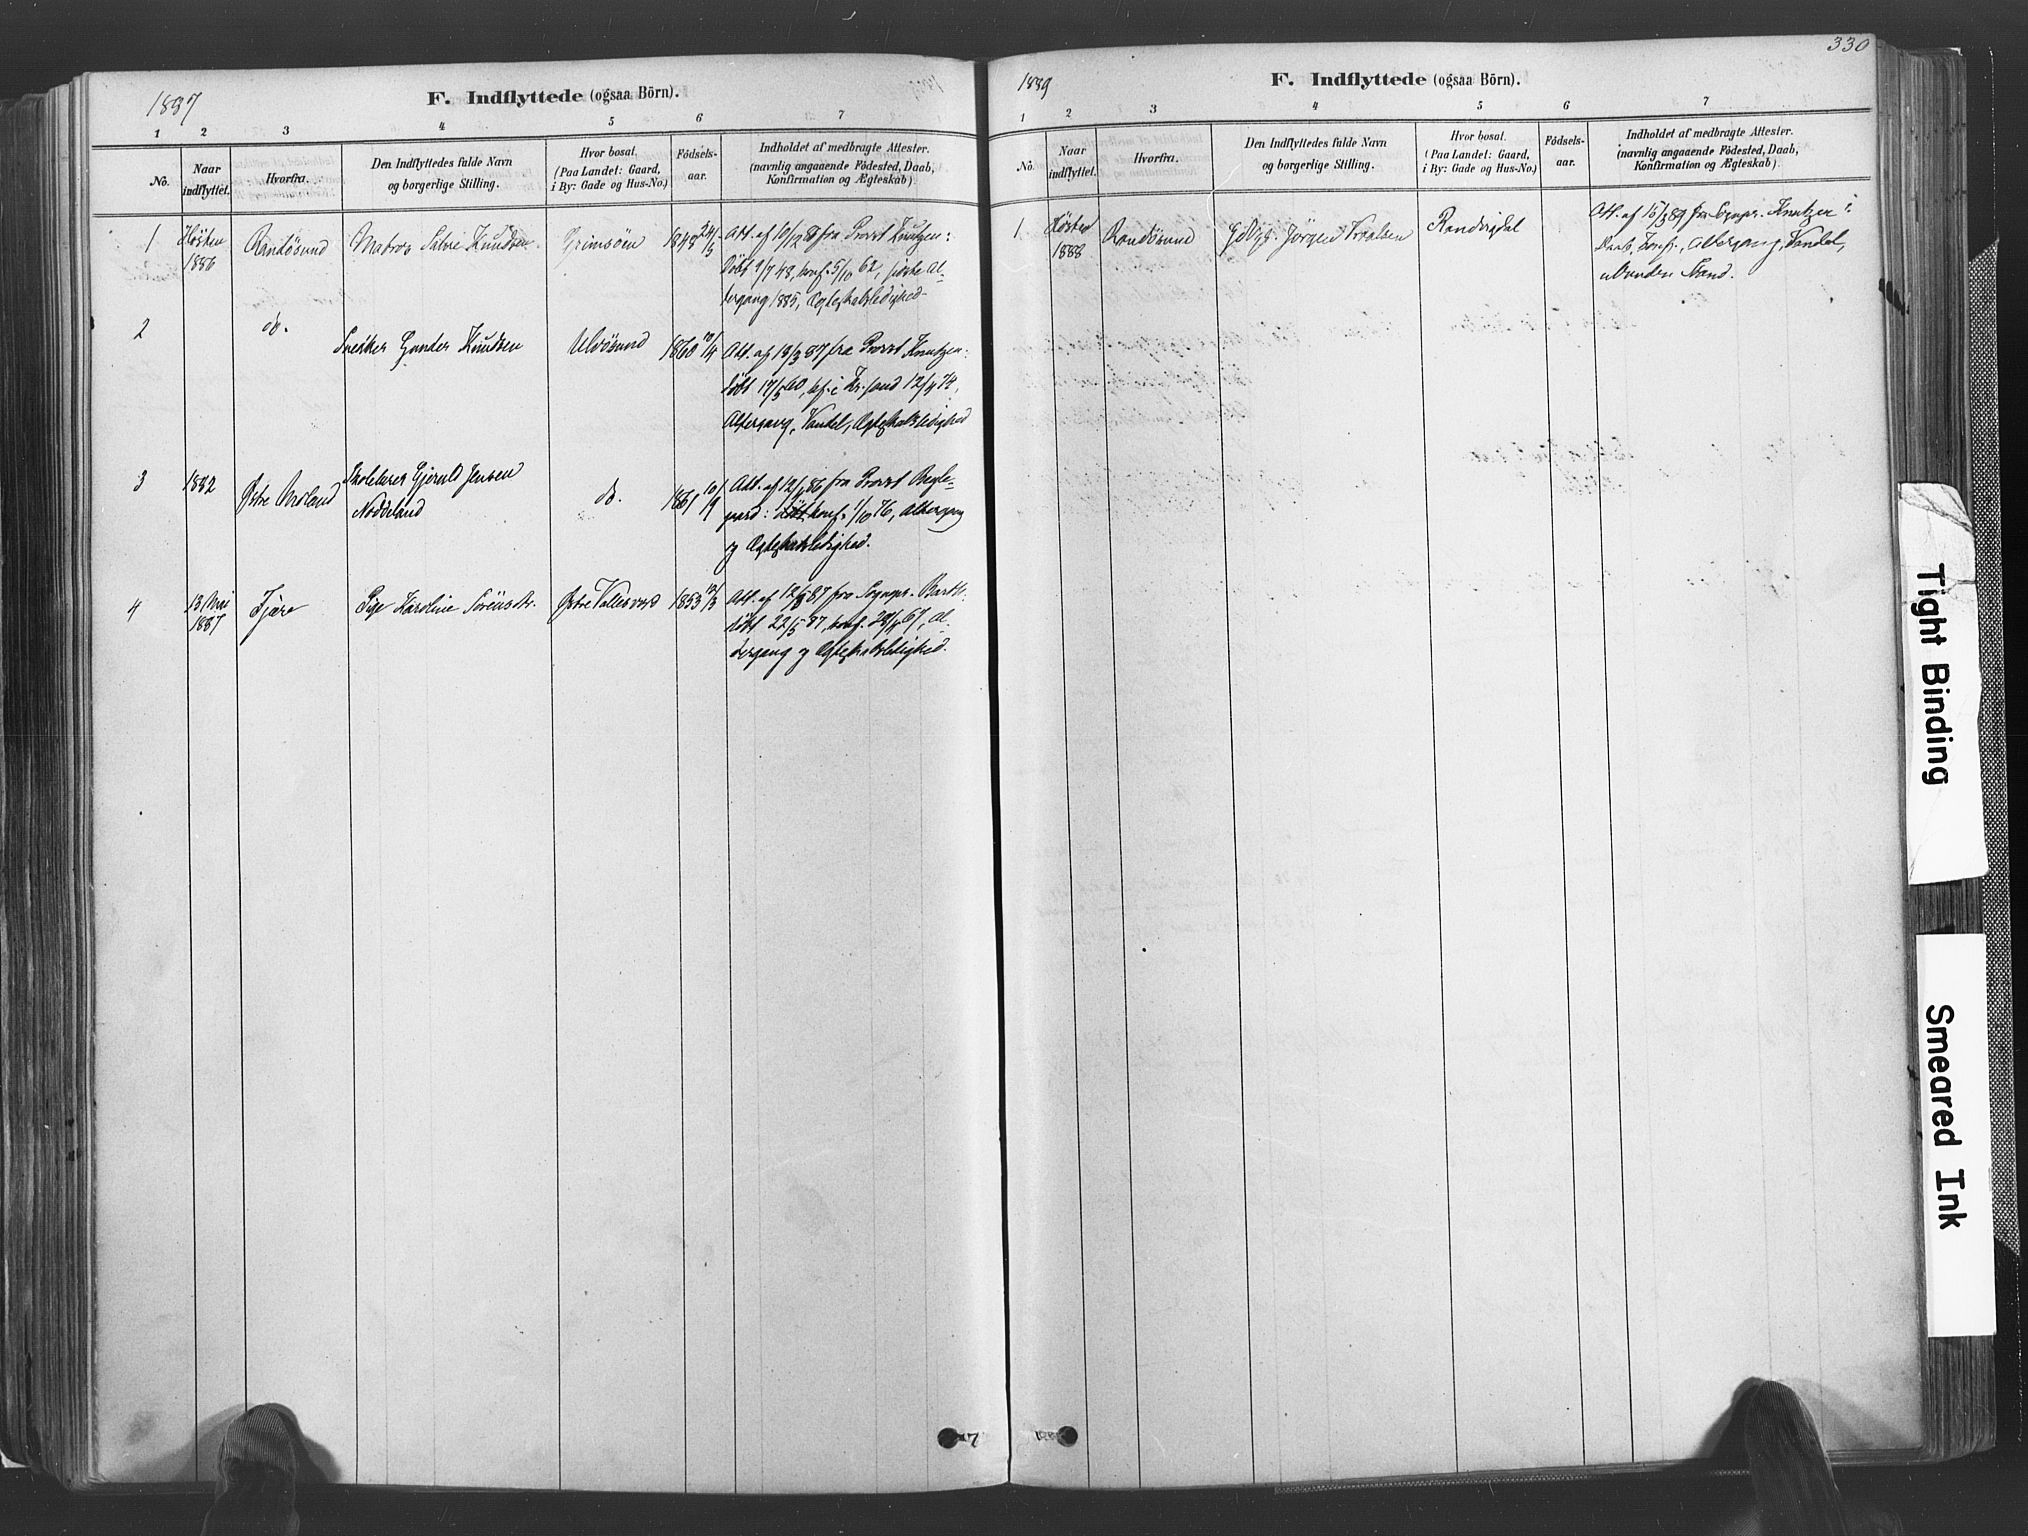 1887
F. Indflyttede (ogsaa Börn).
1 2 3 4 5 6 7
No.
Naar indflyttet.
Hvorfra.
Den Indflyttedes fulde Navn
og borgerlige Stilling.
Hvor bosat.
(Paa Landet: Gaard,
i By: Gade og Hus-No.)
Födsels-
aar.
Indholdet af medbragte Attester.
(navnlig angaaende Födested, Daab,
Konfirmation og Ægteskab)
1 Hösten 1886 Randösund Matros Salve Knudsen Grimsöen 1848 24/5 Att. af 10/12 87 fra Provst Knutzen:
Döbt 9/7 48, konf. 5/10 62, sidste Al-
tergang 1885, Ægteskabsledighed
2 do. Snedker Gunder Knudsen Ulvösund 1860 10/4 Att. af 13/3 87 fra Provst Knutzen:
döbt 17/5 60, kf. i Kr.sand 12/4 74,
Altergang, Vandel, Ægteskabsledighed
3 1882 Östre Moland Skolelærer Gjeruld Jensen
Noddeland do. 1861 10/9 Att. af 12/1 86 fra Provst
konf. 1/10 76, Altergang
og Ægteskabsledighed.
4 13 Mai
1887 Fjære Pige Karoline Sörensdtr. Östre Vallesværd 1853 12/3 Att. af 12/5 87 fra Sognepr. Barth:
döbt 22/5 , konf. 67, Al-
tergang og Ægteskabsledighed.
330
1889
F. Indflyttede (ogsaa Börn).
1 2 3 4 5 6 7
No.
Naar indflyttet.
Hvorfra.
Den Indflyttedes fulde Navn
og borgerlige Stilling.
Hvor bosat.
(Paa Landet: Gaard,
i By: Gade og Hus-No.)
Födsels-
aar.
Indholdet af medbragte Attester.
(navnlig angaaende Födested, Daab,
Konfirmation og Ægteskab)
1 Hösten
1888 Randösund Jörgen Randvigdal Att. af 15/3 89 fra Sognepr. Knutzen:
Daab, Konf., Altergang, Vandel,
ubunden Stand.
Tight Binding
Smeared Ink